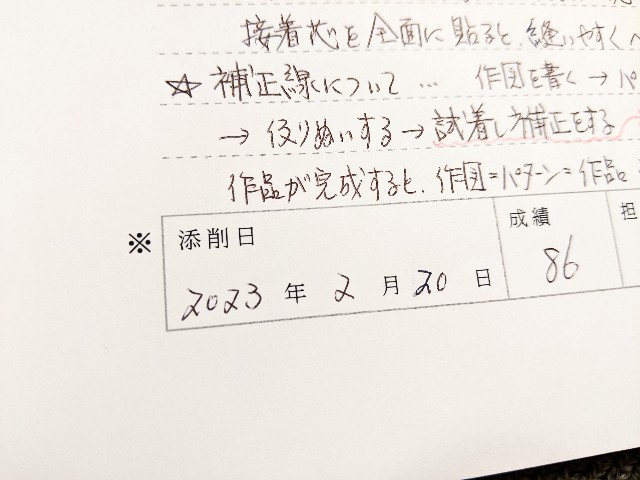 接着芯を全面に貼ると、縫いやすく
☆ 補正線について … 作図を書く → パ
→ 仮りぬいする → 試着し補正をする パ
作品が完成すると、作図=パターン=作品と
※ 添削日 成績 担
2023 年 2 月 20 日 86